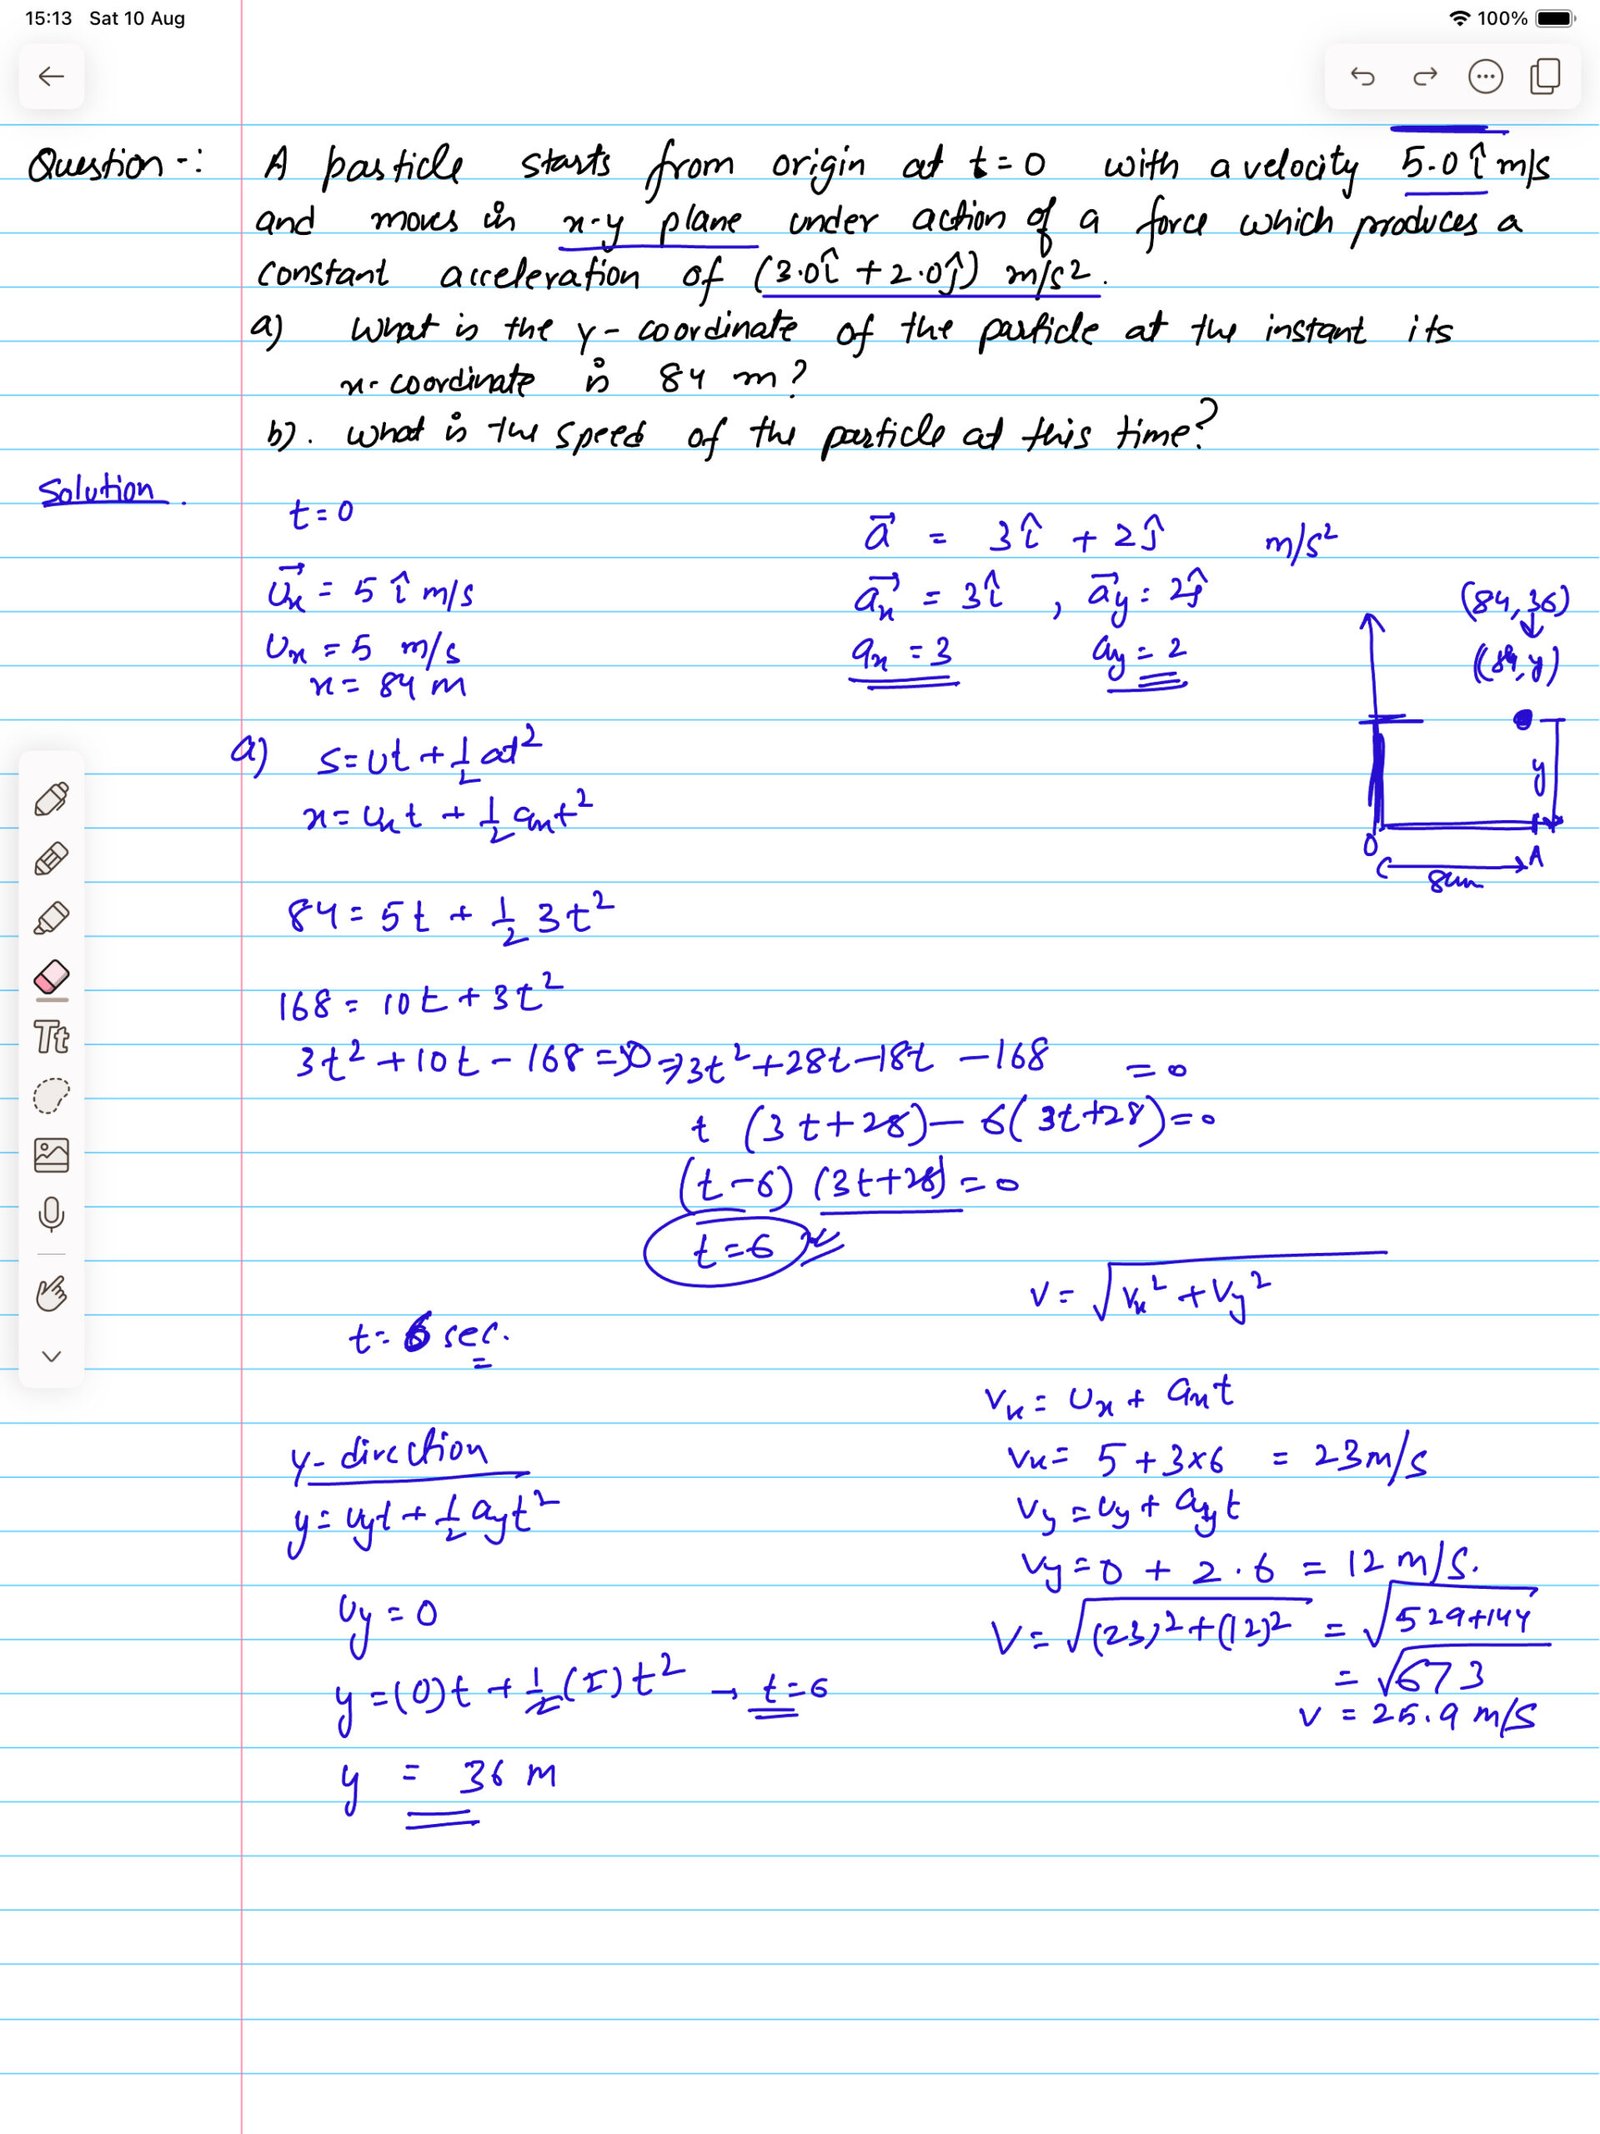 15:13 Sat 10 Aug
100%
Question -: A particle starts from origin at t=0 with a velocity 5.0 î m/s
and moves in x-y plane under action of a force which produces a
constant acceleration of (3.0î + 2.0ĵ) m/s2.
a) What is the y-coordinate of the particle at the instant its
x-coordinate is 84 m?
b). what is the speed of the particle at this time?
Solution.
t=0
u⃗x = 5 î m/s
Ux = 5 m/s
x = 84 m
a⃗ = 3î + 2ĵ m/s²
a⃗x = 3î , a⃗y = 2ĵ
ax = 3 ay = 2
(84,36)
(84,y)
y
O
A
84m
a) S=ut+1/2 at²
x=uxt + 1/2 axt²
84 = 5t + 1/2 3t²
168 = 10t + 3t²
3t² + 10t - 168 = 0 ⇒ 3t² + 28t - 18t - 168 = 0
t (3t+28) - 6(3t+28) = 0
(t-6) (3t+28) = 0
t=6
t = 6 sec.
y-direction
y = uyt + 1/2 ayt²
uy = 0
y = (0)t + 1/2 (2)t² → t=6
y = 36 m
v = √vx² + vy²
vx = ux + axt
vx = 5 + 3×6 = 23m/s
vy = uy + ayt
vy = 0 + 2.6 = 12 m/s.
V = √(23)²+(12)² = √529+144
= √673
v = 25.9 m/s
Tt